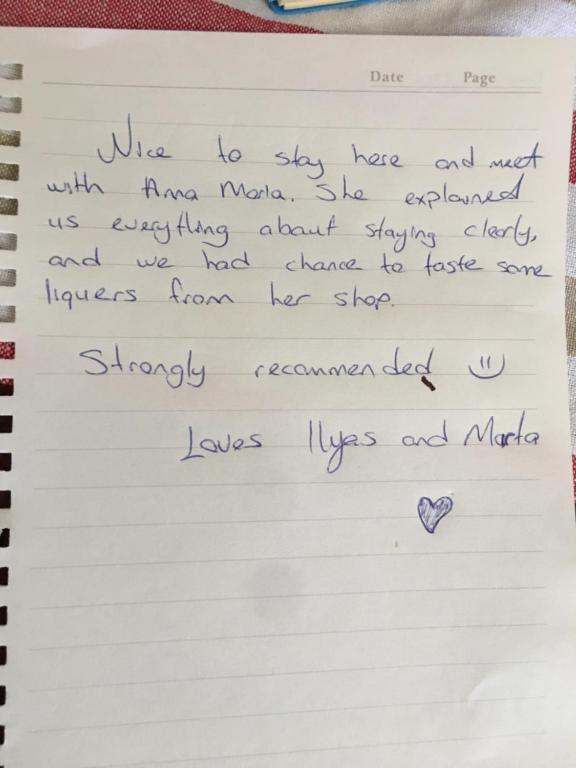 Date Page
Nice to stay here and meet
with Anna Maria. She explained
us everything about staying clearly,
and we had chance to taste some
liquers from her shop.
Strongly recommended
Loves Ilyes and Marta